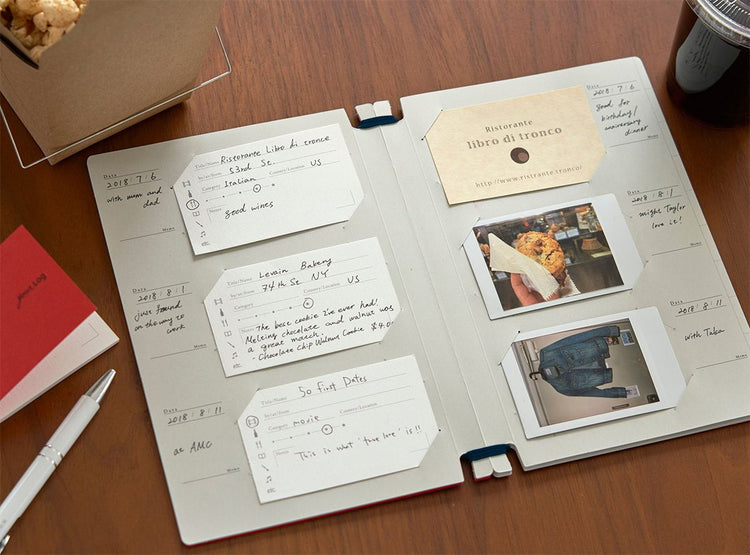 Date
2018 / 7 / 6
with mum and
dad
Memo
Title/Name Ristorante Libro di tronco
53rd St.
Category Italian Country/Location US
Notes
good wines
etc.
Date
2018 / 8 / 1
just found
on the way to
work
Memo
Levain Bakery
Title/Name
74th St. NY
Category Country/Location US
Notes The best cookie I've ever had!
Melting chocolate and walnut was
a great match.
- Chocolate Chip Walnut Cookie $4.0
etc.
Date
2018 / 8 / 11
at AMC
Memo
50 First Dates
Title/Name
Category movie Country/Location
Notes This is what "true love" is!!
etc.
Ristorante
libro di tronco
http://www.ristrante.tronco/
Date
2018 / 7 / 6
good for
birthday/
anniversary
dinner
Memo
Date
2018 / 8 / 1
might Taylor
love it!
Memo
Date
2018 / 8 / 11
with Taka
Memo